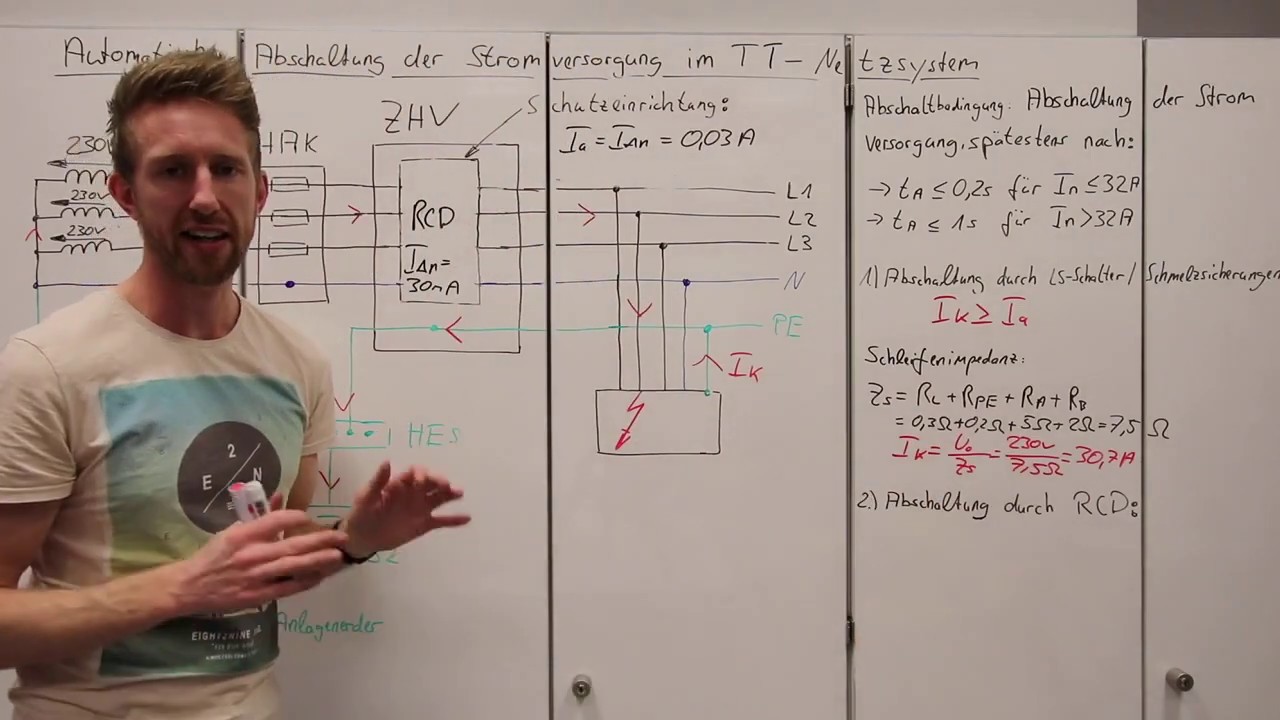 Abschaltung der Stromversorgung im TT-Netzsystem
230V
230V
230V
HAK
ZHV
RCD
IΔn =
30mA
Schutzeinrichtung:
Ia = IΔn = 0,03A
L1
L2
L3
N
PE
IK
HES
Anlagenerder
2
E N
EIGHT2NINE
Abschaltbedingung: Abschaltung der Strom
versorgung, spätestens nach:
→ tA ≤ 0,2s für In ≤ 32A
→ tA ≤ 1s für In > 32A
1.) Abschaltung durch LS-Schalter/Schmelzsicherungen
IK ≥ Ia
Schleifenimpedanz:
Zs = RL + RPE + RA + RB
= 0,3Ω + 0,2Ω + 5Ω + 2Ω = 7,5Ω
IK = U₀/Zs = 230V/7,5Ω = 30,7A
2.) Abschaltung durch RCD: